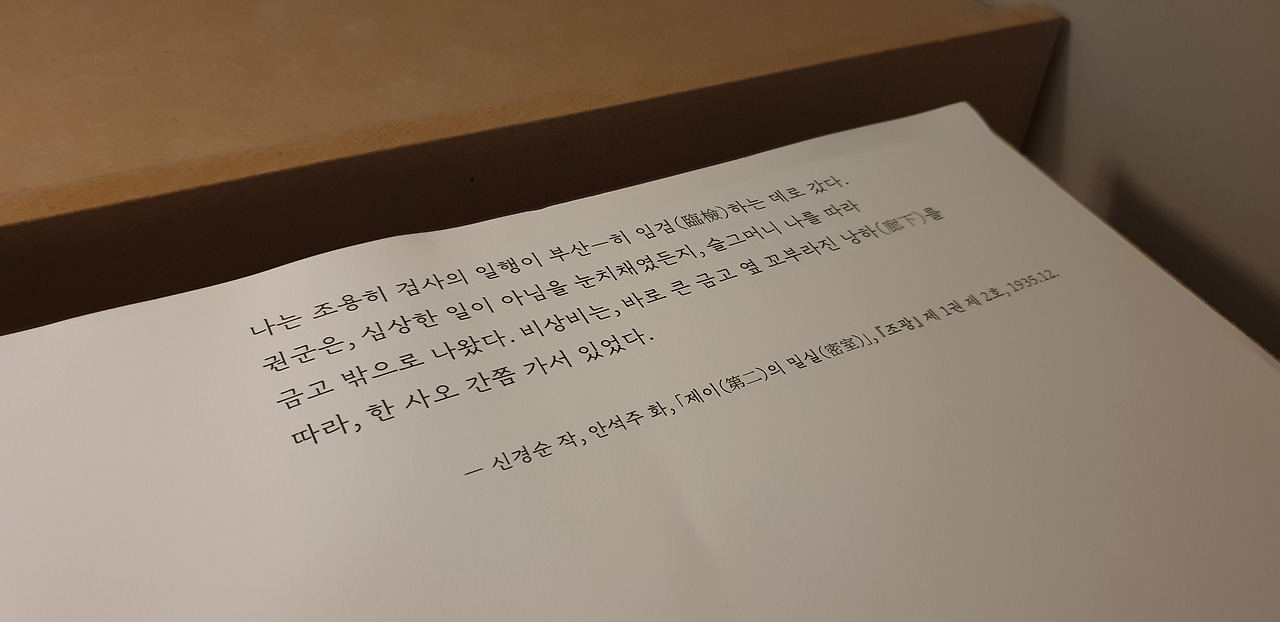 나는 조용히 검사의 일행이 부산—히 임검(臨檢)하는 데로 갔다.
권군은, 심상한 일이 아님을 눈치채였든지, 슬그머니 나를 따라
금고 밖으로 나왔다. 비상비는, 바로 큰 금고 옆 꼬부라진 낭하(廊下)를
따라, 한 사오 간쯤 가서 있었다.
— 신경순 작, 안석주 화, 「제이(第二)의 밀실(密室)」, 『조광』 제 1권 제 2호, 1935.12.